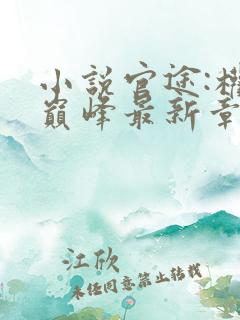 小说官途:权
巅峰最新章
江欣
未经同意禁止转载